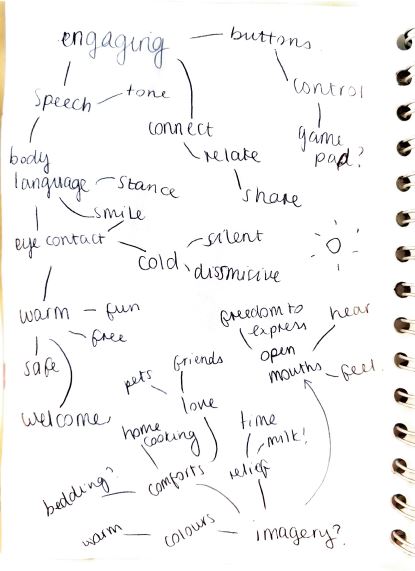 engaging
buttons
speech
tone
control
connect
game
pad?
body
language
stance
relate
share
smile
eye contact
cold
silent
dissmisive
warm
fun
free
safe
welcome
freedom to
express
hear
open
mouths
feel
friends
pets
love
home
cooking
time
milk!
relief
bedding?
comforts
warm
colours
imagery?